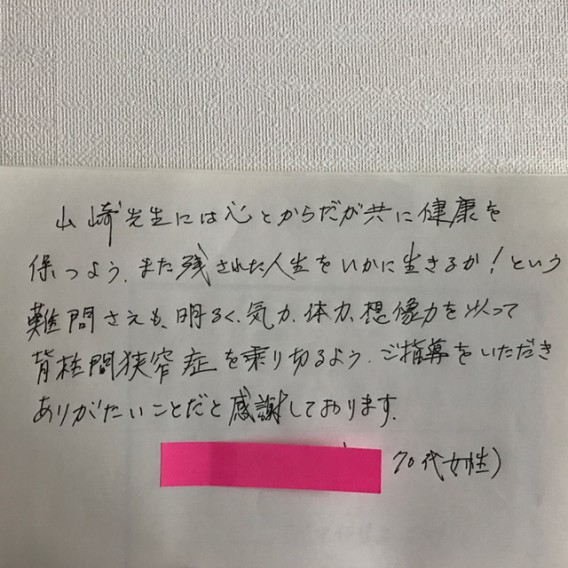 山崎先生には心とからだが共に健康を
保つよう、また残された人生をいかに生きるか！という
難問さえも、明るく、気力、体力、想像力を以って
背柱間狭窄症を乗り切るよう、ご指導をいただき
ありがたいことだと感謝しております。
70代女性)